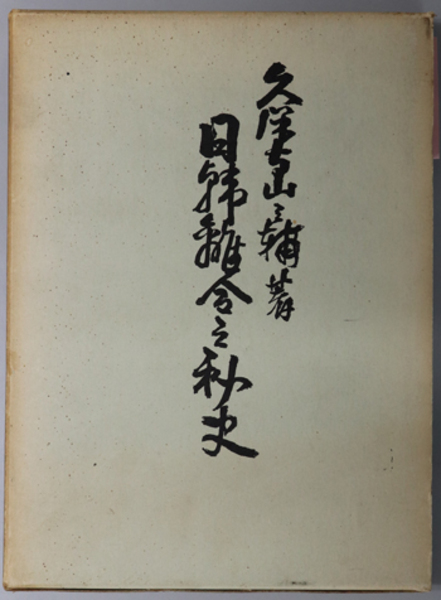 久保寺山之輔著
日韓離合之秘史